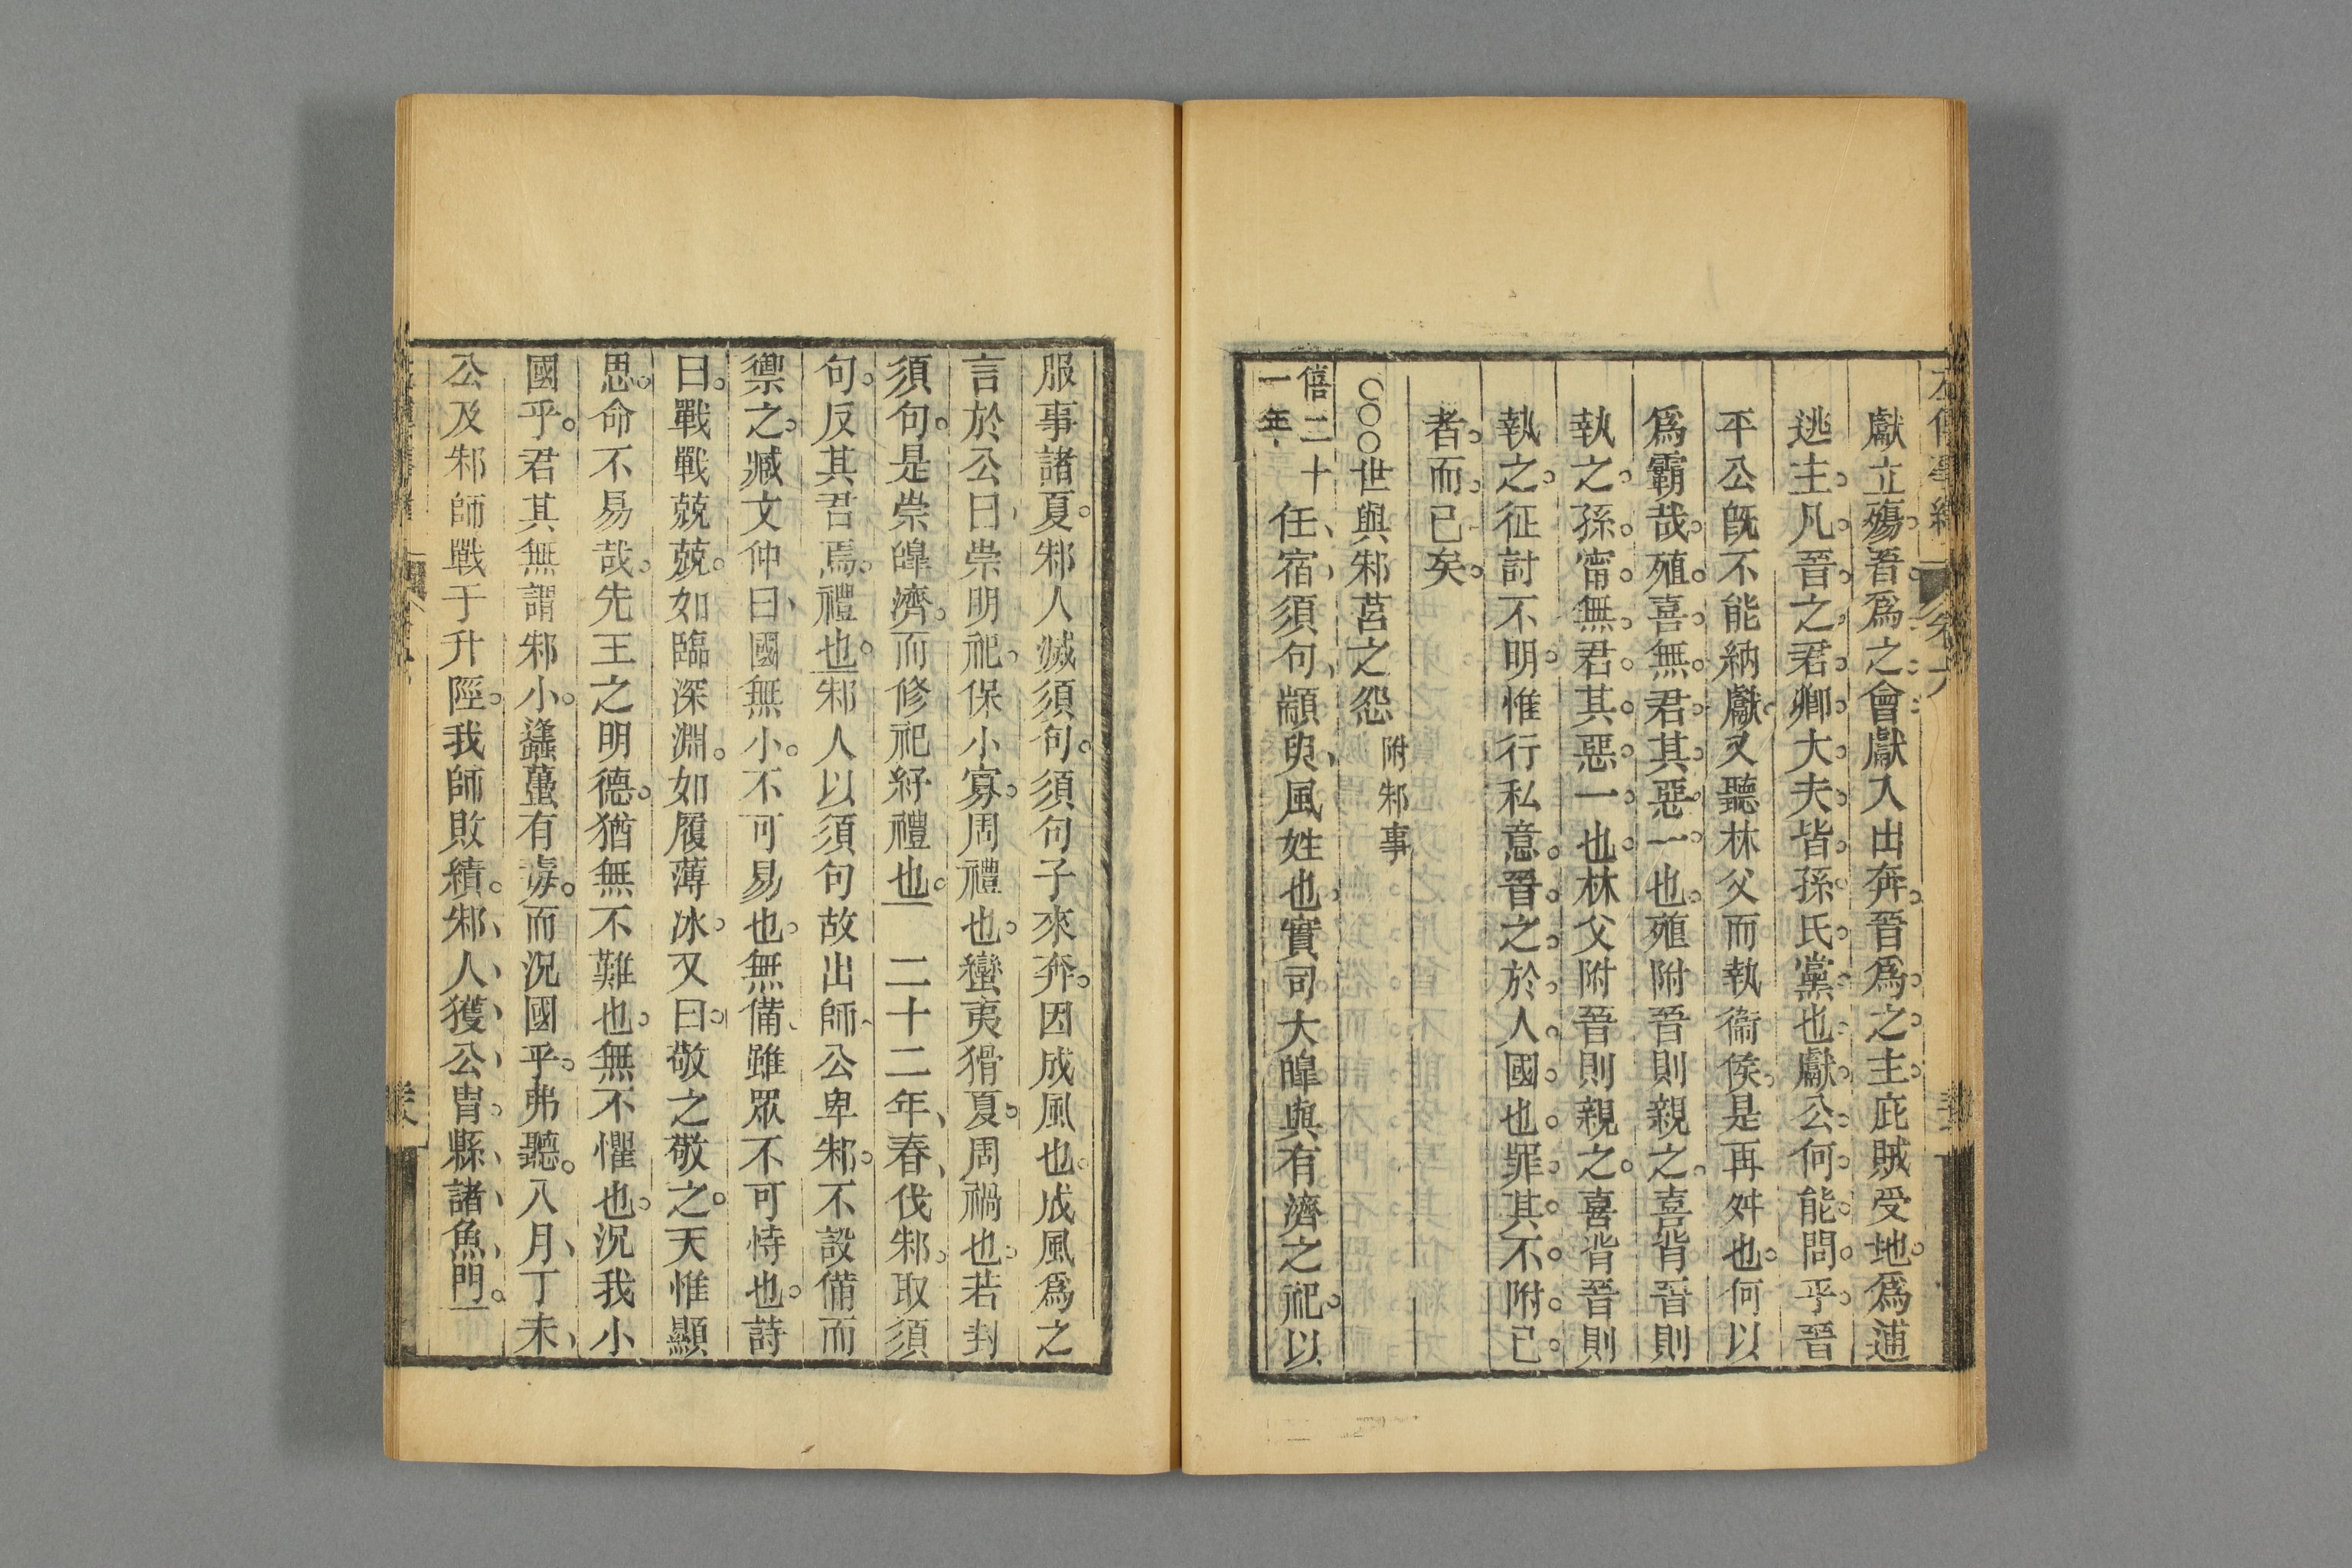 獻立殤吾爲之會獻入出奔晉爲之主庇賊受地爲逋
逃主凡晉之君卿大夫皆孫氏黨也獻公何能問乎晉
平公旣不能納獻又聽林父而執衞侯是再舛也何以
爲霸哉殖喜無君其惡一也殖附晉則親之喜背晉則
執之孫甯無君其惡一也林父附晉則親之喜背晉則
執之征討不明惟行私意晉之於人國也罪其不附已
者而已矣
○○○世與邾莒之怨附邾事
僖二十一年任宿須句顓臾風姓也實司大皥與有濟之祀以
服事諸夏邾人滅須句須句子來奔因成風也成風爲之
言於公曰崇明祀保小寡周禮也蠻夷猾夏周禍也若封
須句是崇皥濟而修祀紓禮也 二十二年春伐邾取須
句反其君焉禮也邾人以須句故出師公卑邾不設備而
禦之臧文仲曰國無小不可易也無備雖眾不可恃也詩
曰戰戰兢兢如臨深淵如履薄冰又曰敬之敬之天惟顯
思命不易哉先王之明德猶無不難也無不懼也況我小
國乎君其無謂邾小蠭蠆有毒而況國乎弗聽八月丁未
公及邾師戰于升陘我師敗績邾人獲公胄縣諸魚門